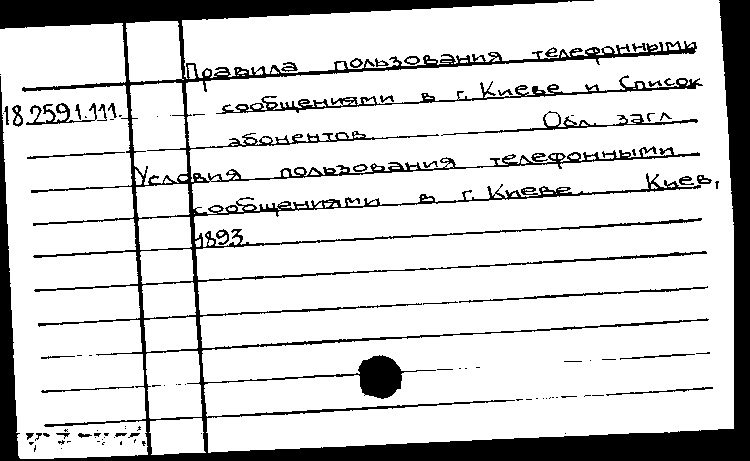 Правила пользования телефонными
18.2591.111. сообщениями в г. Киеве и Список
абонентов. Обл. загл
Условия пользования телефонными
сообщениями в г. Киеве. Киев,
1893.